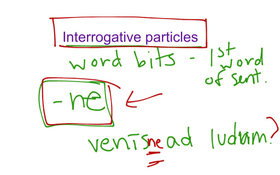 Interrogative particles
word bits - 1st word of sent.
-ne
venīsne ad ludum?